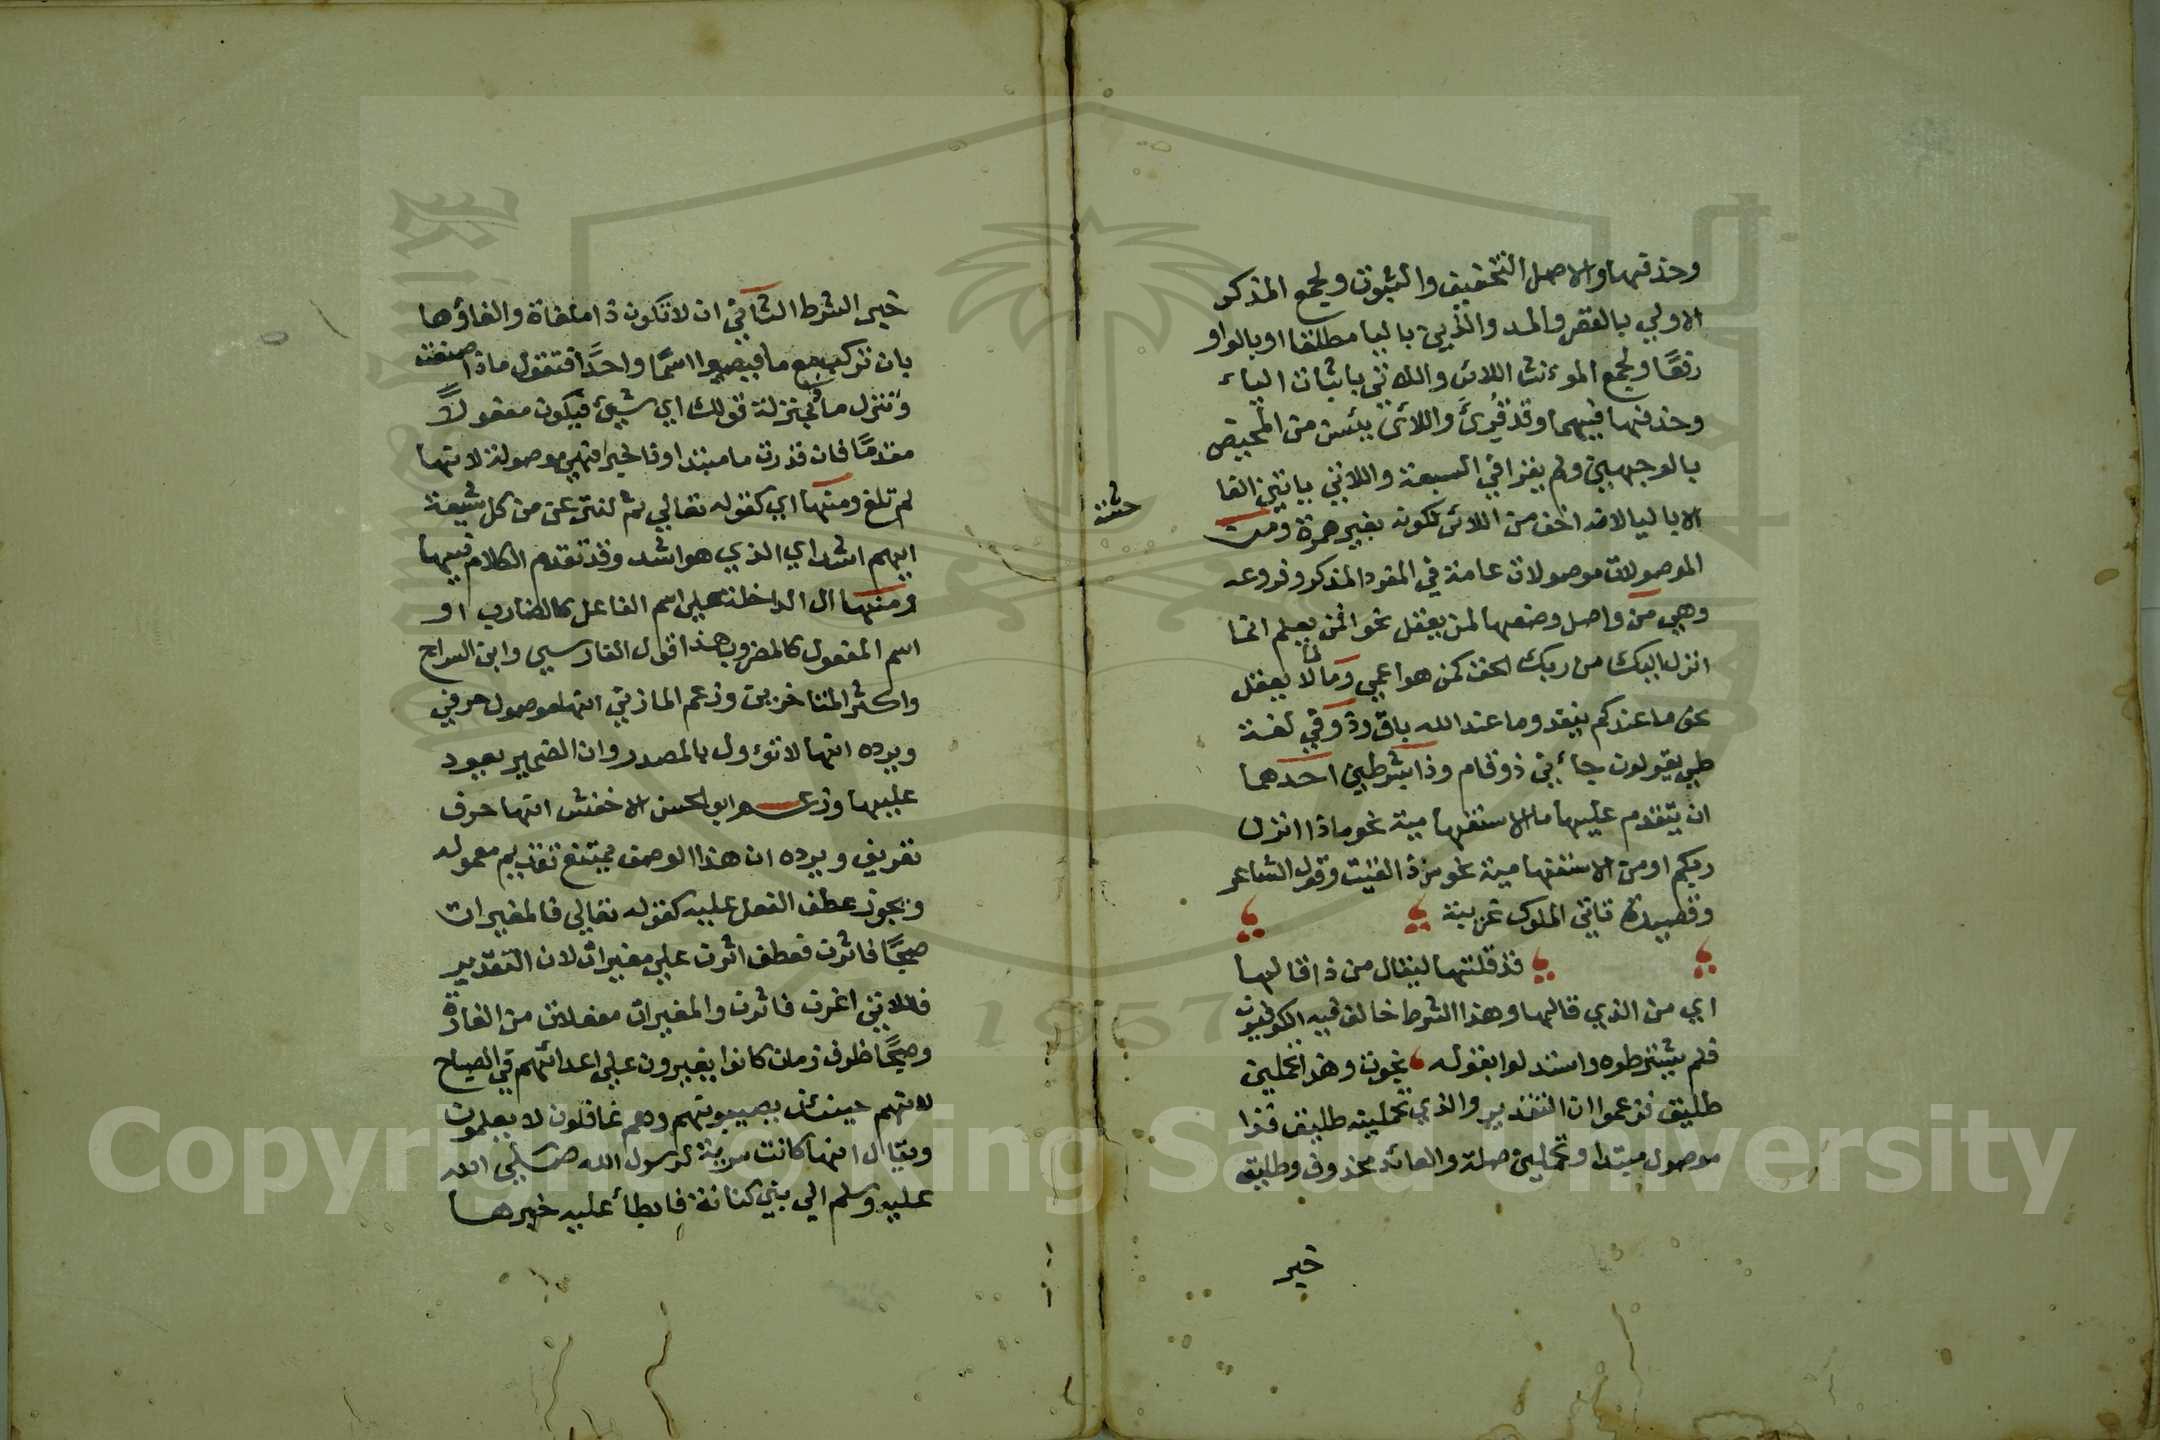 وحذفها والاصل التخفيف والثبوت ولجمع المذكر
الاولي بالقصر والمد والذين باليا مطلقا او بالواو
رفعًا ولجمع المونث اللائي واللاتي باثبات الياء
وحذفها فيهما وقد قُرِئَ واللائى يئسن من المحيض
بالوجهين ولم يقرا في السبعة واللاتي ياتين الفا
الا باليا لانه اخف من اللائى لكونه بغير همزة ومن
الموصولات موصولات عامة في المفرد المذكر وفروعه
وهي من واصل وضعها لمن يعقل نحو افمن يعلم انما
انزل اليك من ربك الحق كمن هو اعمي وما لما لا يعقل
نحو ما عندكم ينفد وما عند الله باق وذو في لغة
طي يقولون جاءني ذو قام وذا بشرطين احدهما
ان يتقدم عليها ما الاستفهامية نحو ماذا انزل
ربكم او من الاستفهامية نحو من ذا لقيت وقول الشاعر
وقصيدة تاتي الملوك غريبة
قد قلتها ليقال من ذا قالها
اي من الذي قالها وهذا الشرط خالف فيه الكوفيون
فلم يشترطوه واستدلوا بقوله نجوت وهذا تحملين
طليق فزعموا ان التقدير والذي تحملينه طليق فذا
موصول مبتدا وتحملين صلة والعائد محذوف وطليق
خبر
خبر الشرط الثاني ان لا تكون ذا ملغاة والغاؤها
بان تركب مع ما فيصيرا اسمًا واحدًا فتقول ماذا صنعت
وتنزل ماذا بمنزلة قولك اي شيئ فيكون مفعولاً
مقدمًا فان قدرت ما مبتدا وذا خبرا فهي موصولة لانها
لم تلغ ومنها اي كقوله تعالي ثم لننزعن من كل شيعة
ايهم اشد اي الذي هو اشد وقد تقدم الكلام فيها
ومنها ال الداخلة علي اسم الفاعل كالضارب او
اسم المفعول كالمضروب هذا قول الفارسي وابن السراج
واكثر المتاخرين وزعم المازني انها موصول حرفي
ويرده انها لا تؤول بالمصدر وان الضمير يعود
عليها وزعم ابو الحسن الاخفش انها حرف
تعريف ويرده ان هذا الوصف يمتنع تقديم معموله
ويجوز عطف الفعل عليه كقوله تعالي فالمغيرات
صبحًا فاثرن فعطف اثرن علي مغيرات لان التقدير
فاللاتي اغرن فاثرن والمغيرات مفعلات من الغارة
وصبحًا ظرف زمان كانوا يغيرون علي اعدائهم في الصباح
لانهم حينئذ يصيبونهم وهم غافلون لا يعلمون
ويقال انها كانت سرية لرسول الله صلي الله
عليه وسلم الي بني كنانة فابطأ عليه خبرها